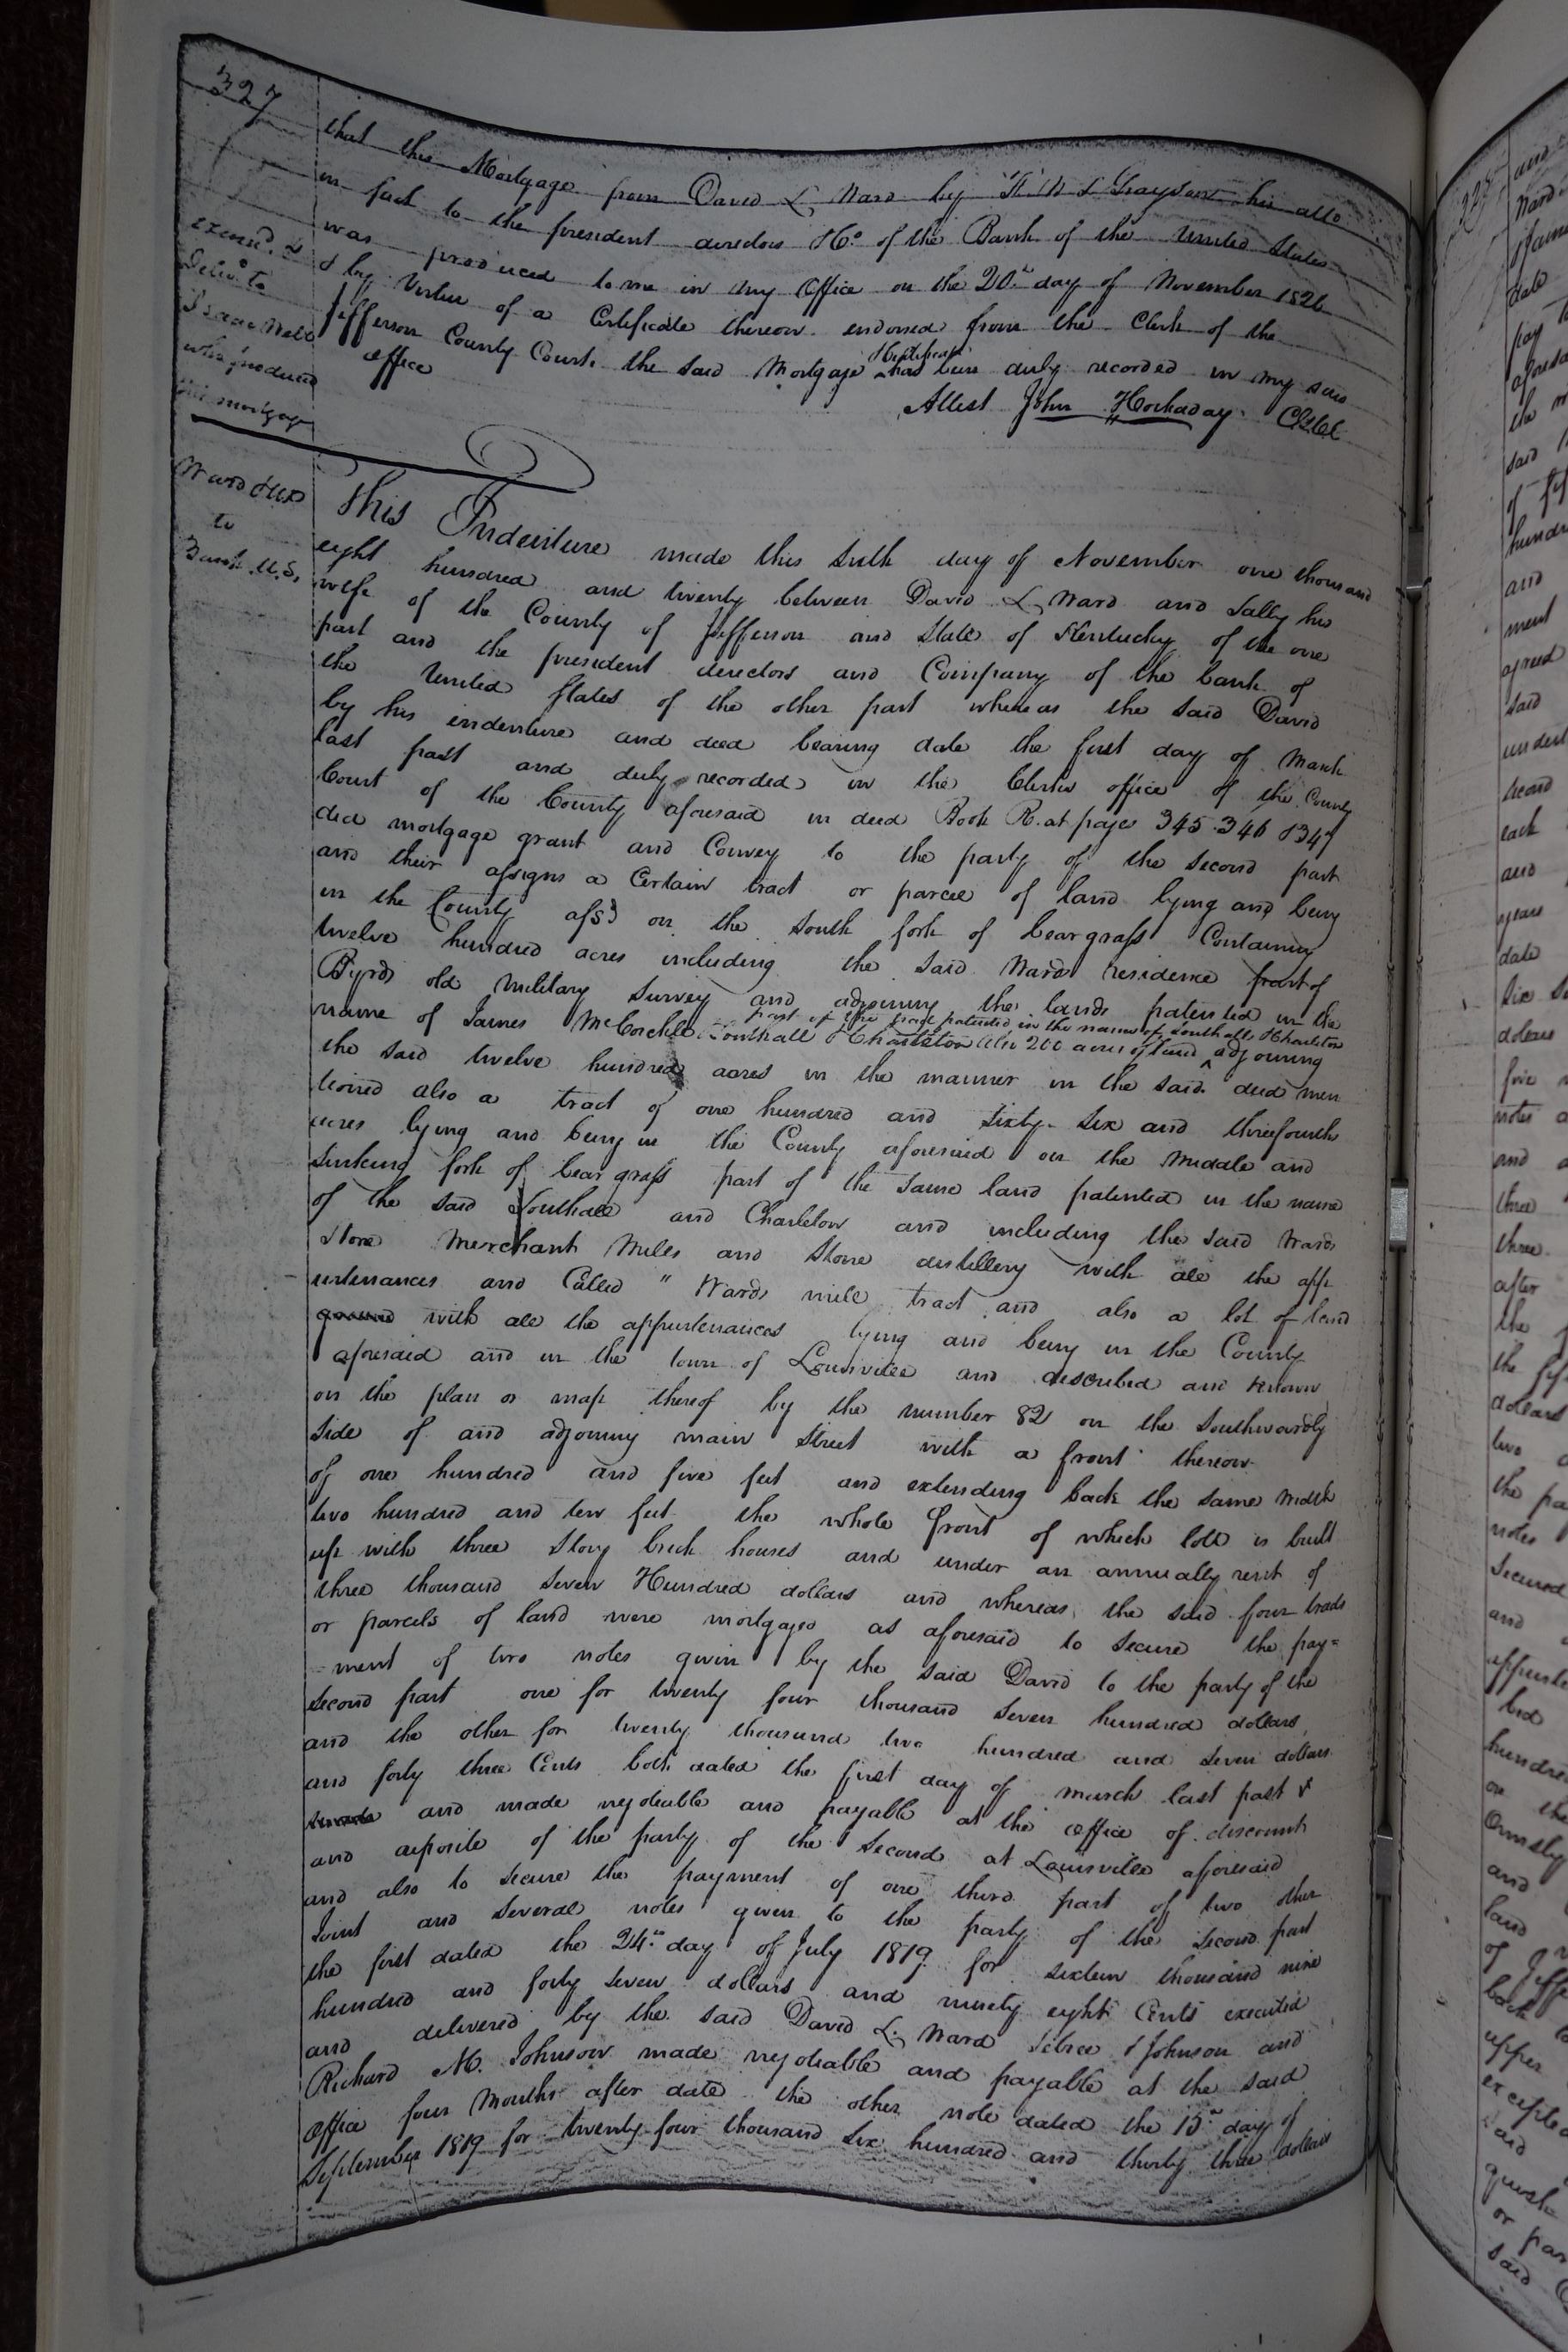 327
that this Mortgage from David L Ward by F W S Grayson his atto
in fact to the president directors &Co. of the Bank of the United States
was produced to me in my Office on the 20th day of November 1820
& by Virtue of a Certificate thereon endorsed from the Clerk of the
Jefferson County Court the said Mortgage &certificate has been duly recorded in my said
office
Attest John Hockaday
Examd. &
Delivd to
Isaac
who produced
this mortgage
Ward &ux
to
Bank U.S.
This Indenture made this sixth day of November one thousand
eight hundred and twenty between David L Ward and Sally his
wife of the County of Jefferson and State of Kentucky of the one
part and the president directors and Company of the bank of
the United States of the other part whereas the said David
by his indenture and deed bearing date the first day of March
last past and duly recorded in the Clerks office of the County
Court of the County aforesaid in deed Book R. at pages 345. 346 &347
did mortgage grant and Convey to the party of the second part
and their assigns a Certain tract or parcel of land lying and being
in the County afsd on the South fork of beargrass Containing
twelve hundred acres including the said Wards residence part of
Byrds old military Survey and adjoining the lands patented in the
name of James McCorkle Southall &Charleton also 200 acres of land part of the tract patented in the name of Southall &Charleton adjoining
the said twelve hundred acres in the manner in the said deed men
tioned also a tract of one hundred and sixty six and threefourths
acres lying and being in the County aforesaid on the middle and
Sinking fork of bear grass part of the same land patented in the name
of the said Southall and Charleton and including the said Wards
Stone Merchant Mills and Stone distillery with all the app
urtenances and Called " Wards mill tract and also a lot of land
ground with all the appurtenances lying and being in the County
aforesaid and in the town of Louisville and described and known
on the plan or map thereof by the number 82 on the Southwardly
side of and adjoining main Street with a front thereon
of one hundred and five feet and extending back the same width
two hundred and ten feet the whole front of which lott is built
up with three story brick houses and under an annually rent of
three thousand seven Hundred dollars and whereas the said four tracts
or parcels of land were mortgaged as aforesaid to secure the pay=
=ment of two notes given by the said David to the party of the
second part one for twenty four thousand seven hundred dollars
and the other for twenty thousand two hundred and seven dollars
and forty three Cents both dated the first day of march last past &
and made negotiable and payable at the office of discount
and deposite of the party of the second at Louisville aforesaid
and also to secure the payment of one third part of two other
Joint and several notes given to the party of the second part
the first dated the 24th day of July 1819 for sixteen thousand nine
hundred and forty seven dollars and ninety eight Cents executed
and delivered by the said David L. Ward Sebree &Johnson and
Richard M. Johnson made negotiable and payable at the said
office four months after date the other note dated the 15th day of
September 1819 for twenty four thousand six hundred and thirty three dollars